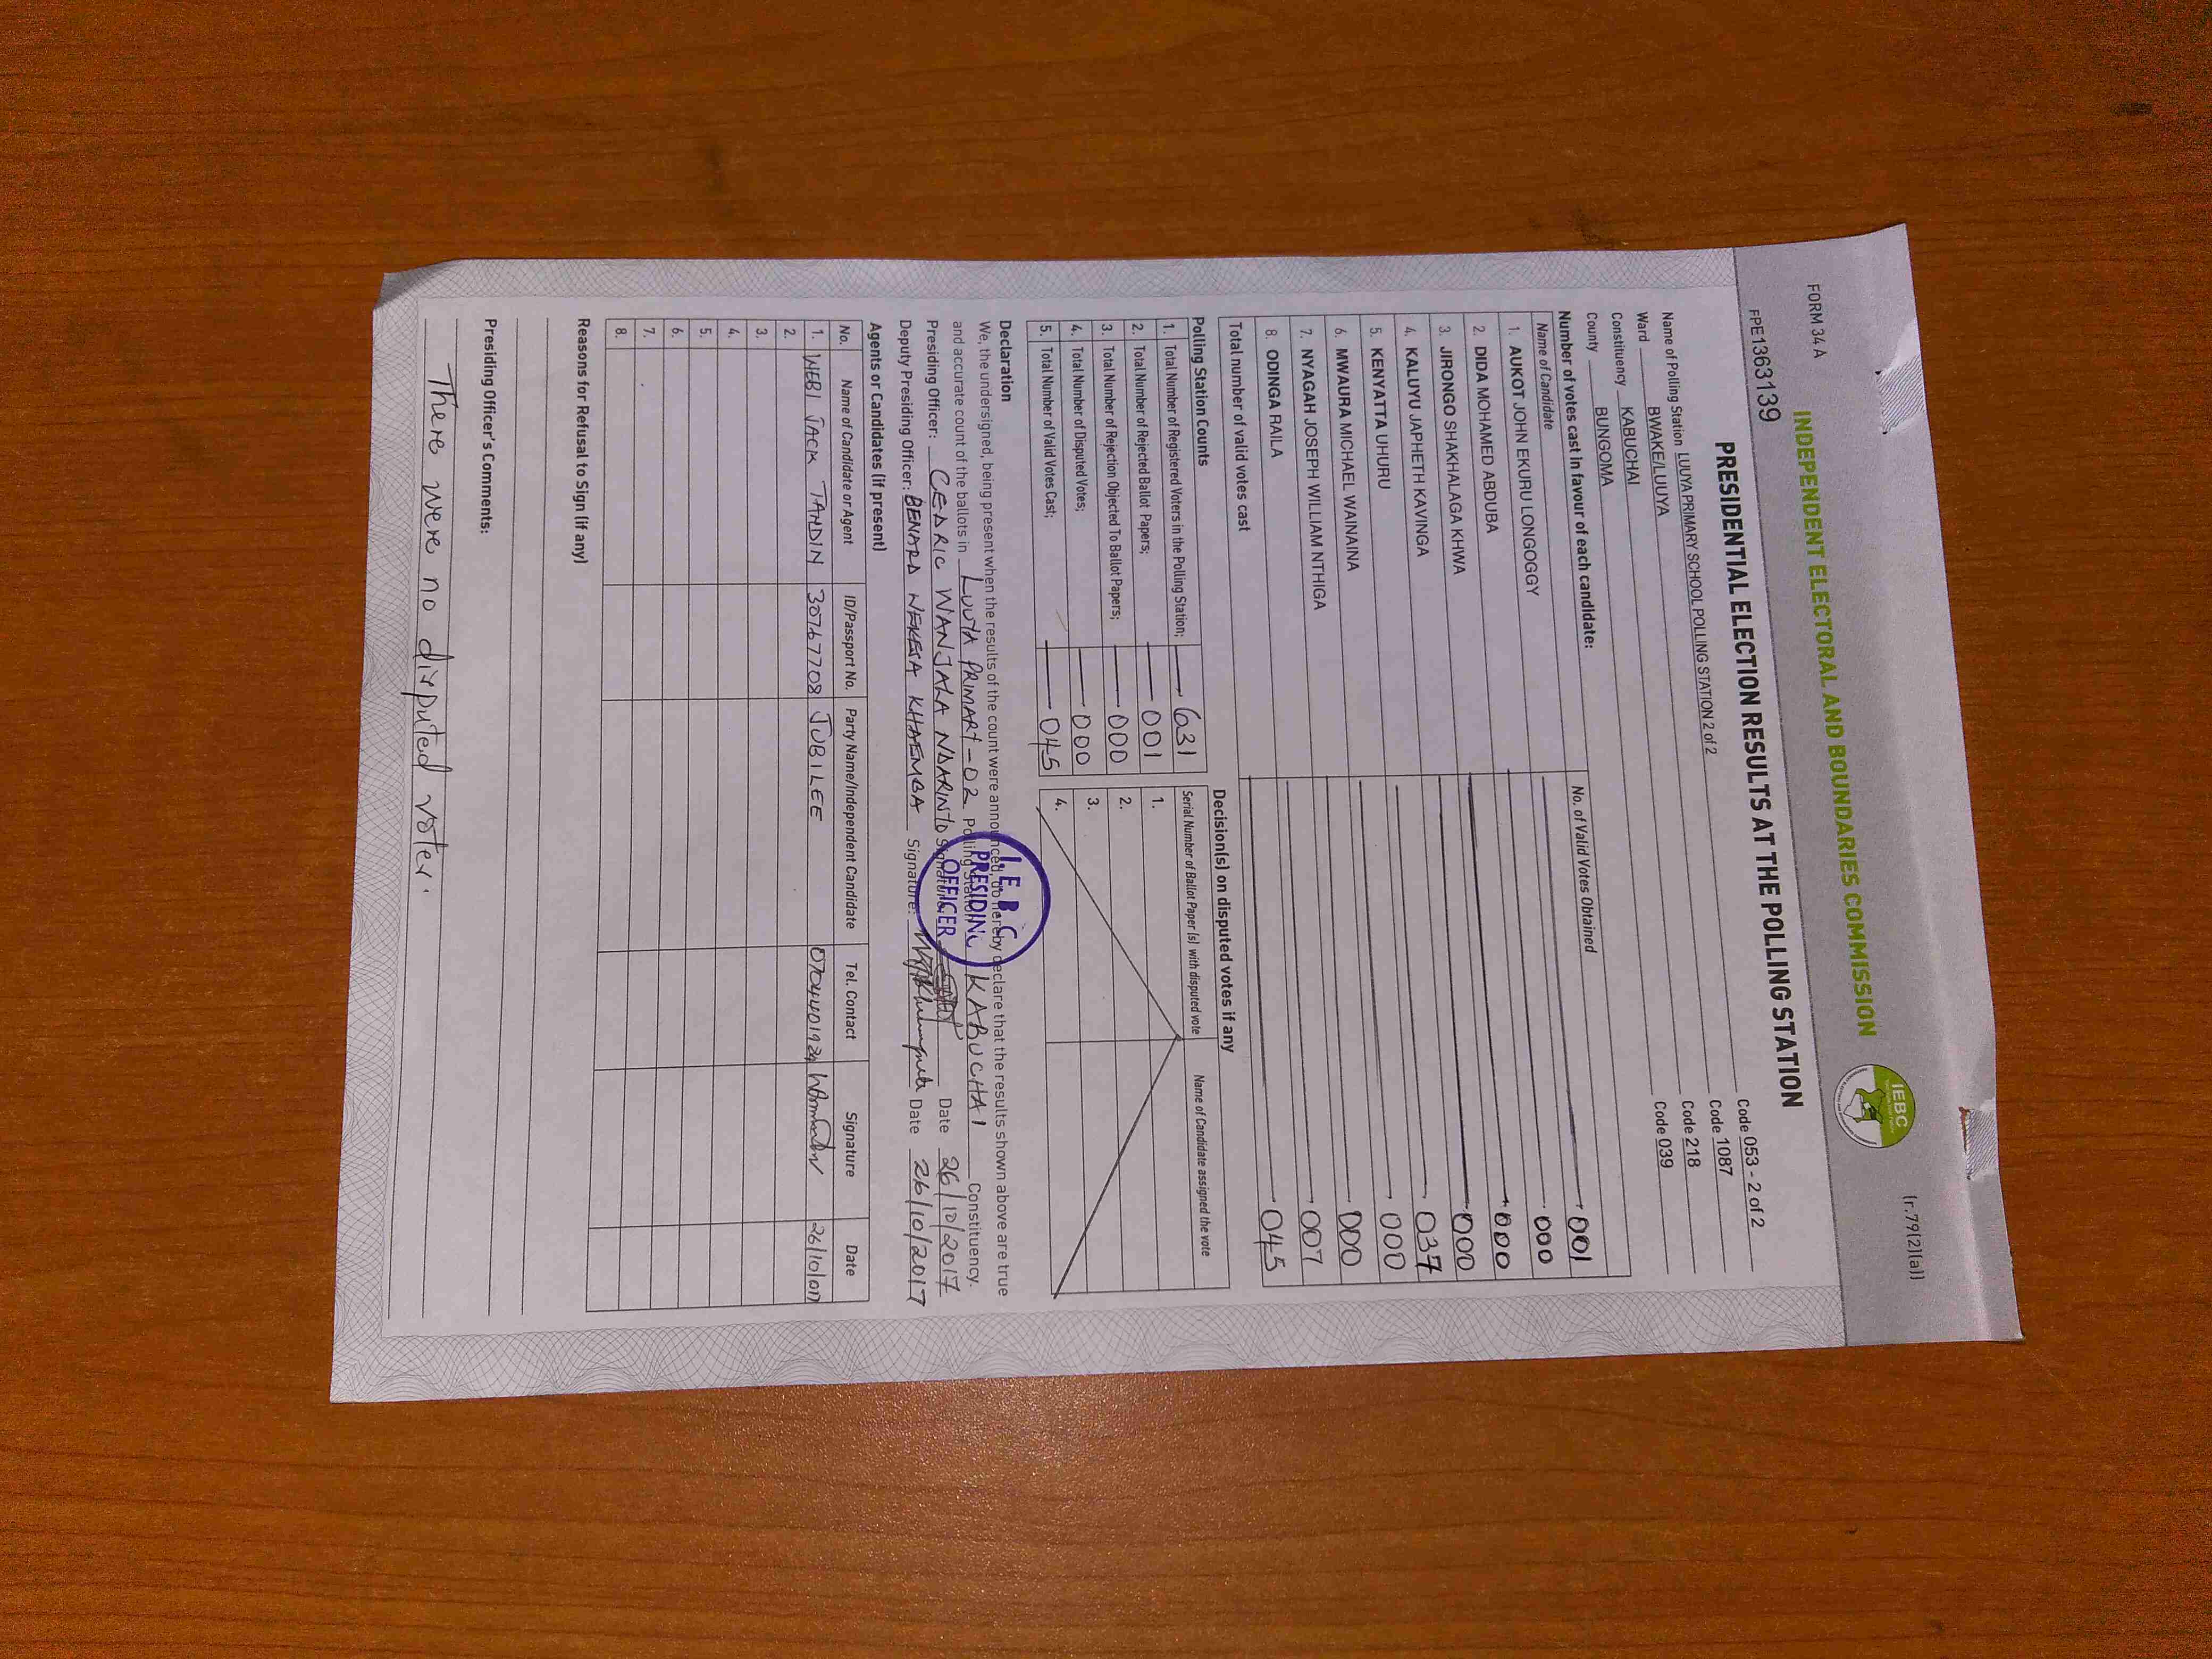 FORM 34 A
(r.79(2)(a))
INDEPENDENT ELECTORAL AND BOUNDARIES COMMISSION
IEBC
FPE1363139
PRESIDENTIAL ELECTION RESULTS AT THE POLLING STATION
Name of Polling Station LUUYA PRIMARY SCHOOL POLLING STATION 2 of 2 Code 053 - 2 of 2
Ward BWAKE/LUUYA Code 1087
Constituency KABUCHAI Code 218
County BUNGOMA Code 039
Number of votes cast in favour of each candidate:
Name of Candidate No. of Valid Votes Obtained
1. AUKOT JOHN EKURU LONGOGGY 001
2. DIDA MOHAMED ABDUBA 000
3. JIRONGO SHAKHALAGA KHWA 000
4. KALUYU JAPHETH KAVINGA 000
5. KENYATTA UHURU 037
6. MWAURA MICHAEL WAINAINA 000
7. NYAGAH JOSEPH WILLIAM NTHIGA 000
8. ODINGA RAILA 007
Total number of valid votes cast 045
Polling Station Counts
1. Total Number of Registered Voters in the Polling Station; 631
2. Total Number of Rejected Ballot Papers; 001
3. Total Number of Rejection Objected To Ballot Papers; 000
4. Total Number of Disputed Votes; 000
5. Total Number of Valid Votes Cast; 045
Decision(s) on disputed votes if any
Serial Number of Ballot Paper (s) with disputed vote Name of Candidate assigned the vote
1.
2.
3.
4.
Declaration
We, the undersigned, being present when the results of the count were announced, do hereby declare that the results shown above are true
and accurate count of the ballots in LUUYA PRIMARY - 02 Polling Station KABUCHAI Constituency.
Presiding Officer: CEDRIC WANJALA Signature: Date 26/10/2017
Deputy Presiding Officer: BENARD WEKESA KHAEMBA Signature: Date 26/10/2017
I.E.B.C
PRESIDING
OFFICER
Agents or Candidates (if present)
No. Name of Candidate or Agent ID/Passport No. Party Name/Independent Candidate Tel. Contact Signature Date
1. WEBI JACK TANDIN 30767708 JUBILEE
2.
3.
4.
5.
6.
7.
8.
Reasons for Refusal to Sign (if any)
Presiding Officer's Comments:
There were no disputed votes.